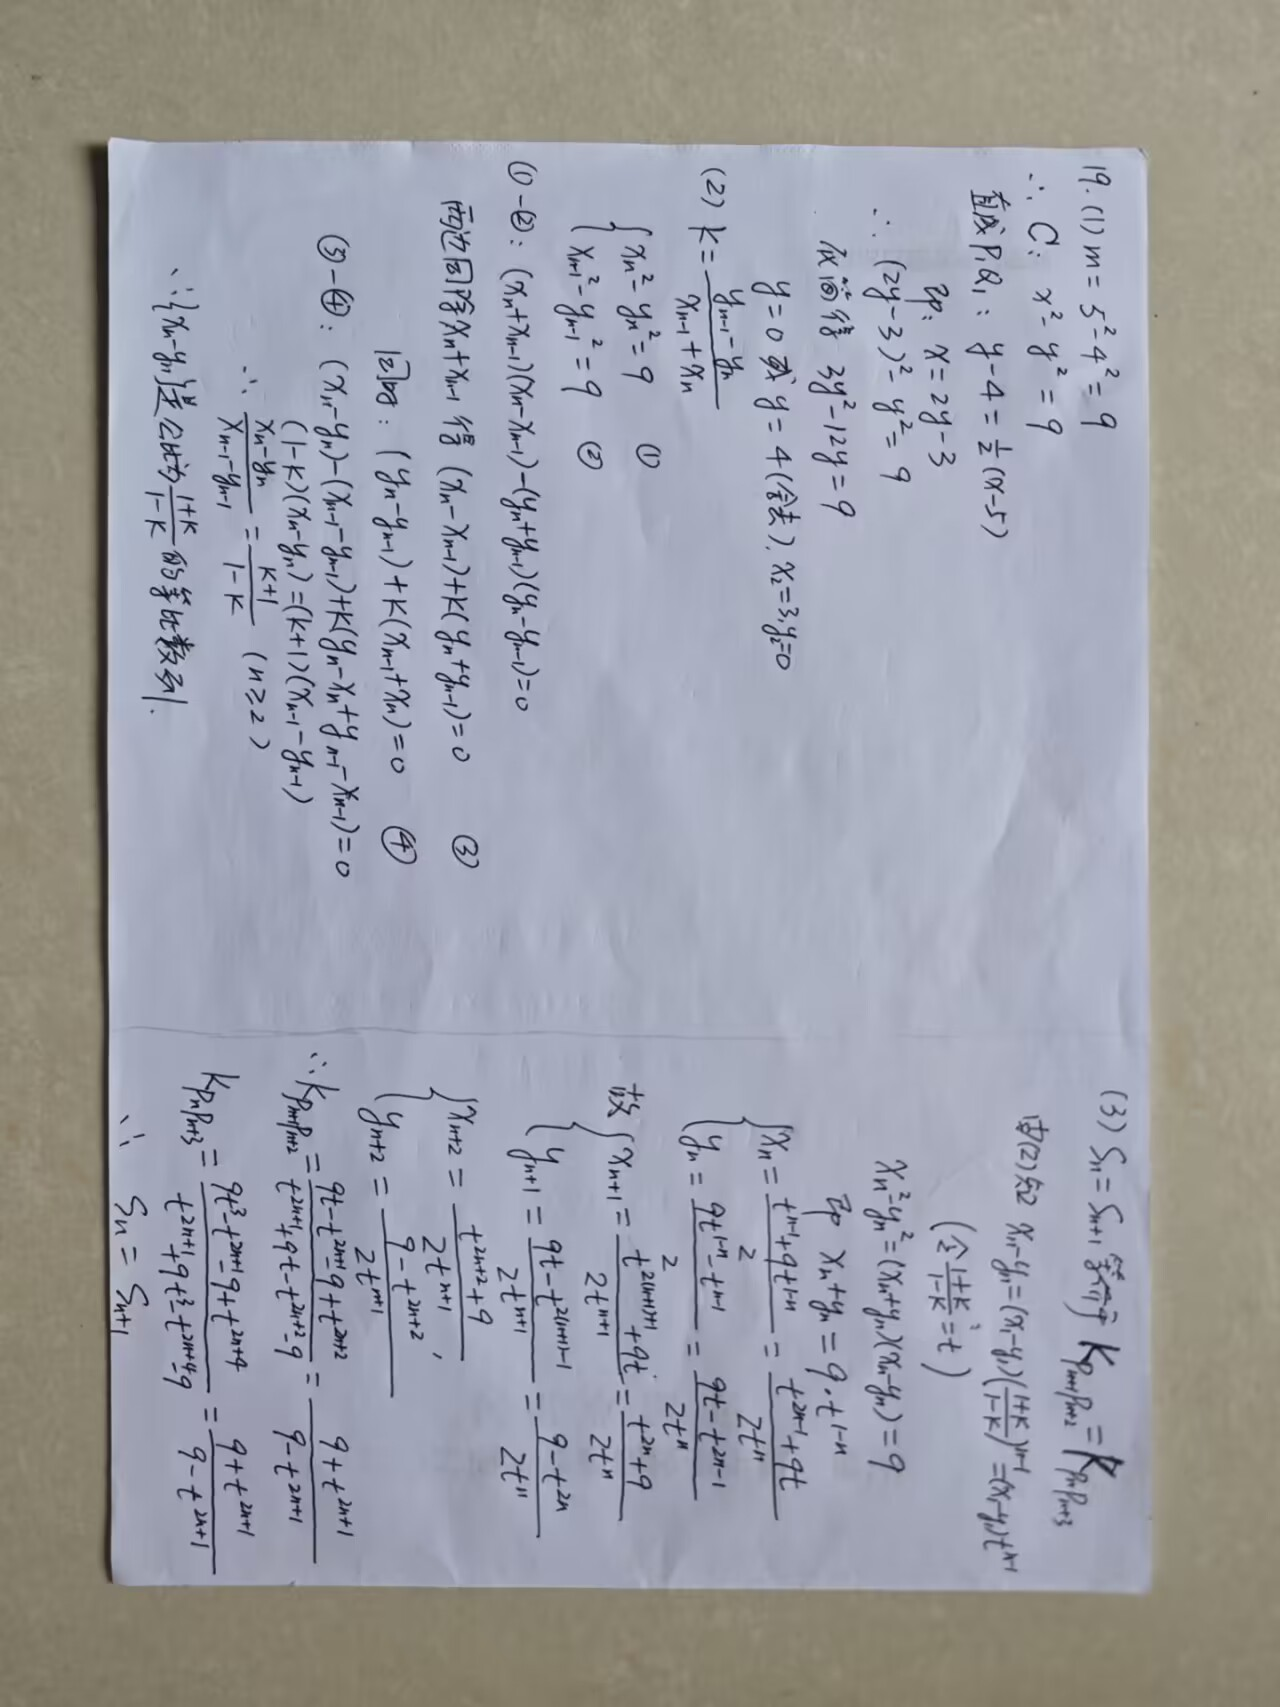 19.(1) m = 5²-4² = 9
∴ C: x²-y² = 9
直线P₁Q₁: y-4 = 1/2(x-5)
即: x = 2y-3
∴ (2y-3)²-y² = 9
化简得 3y²-12y = 9
y = 0 或 y = 4(舍去), x₂=3, y₂=0
(2) k = (yₙ₋₁-yₙ)/(xₙ₋₁+xₙ)
{ xₙ²-yₙ² = 9 ①
xₙ₋₁²-yₙ₋₁² = 9 ②
①-②: (xₙ+xₙ₋₁)(xₙ-xₙ₋₁)-(yₙ+yₙ₋₁)(yₙ-yₙ₋₁)=0
两边同除xₙ+xₙ₋₁得 (xₙ-xₙ₋₁)+k(yₙ+yₙ₋₁)=0 ③
因为: (yₙ-yₙ₋₁)+k(xₙ₋₁+xₙ)=0 ④
③-④: (xₙ-yₙ)-(xₙ₋₁-yₙ₋₁)+k(yₙ-xₙ+yₙ₋₁-xₙ₋₁)=0
(1-k)(xₙ-yₙ)=(k+1)(xₙ₋₁-yₙ₋₁)
∴ (xₙ-yₙ)/(xₙ₋₁-yₙ₋₁) = (k+1)/(1-k) (n≥2)
∴{xₙ-yₙ}是公比为(1+k)/(1-k)的等比数列.
(3) Sₙ = Sₙ₊₁等价于 k_{Pₙ₊₁Pₙ₊₂} = k_{PₙPₙ₊₃}
由(2)知 xₙ-yₙ=(x₁-y₁)((1+k)/(1-k))ⁿ⁻¹=(x₁-y₁)tⁿ⁻¹
(令(1+k)/(1-k)=t)
xₙ²-yₙ²=(xₙ+yₙ)(xₙ-yₙ)=9
即 xₙ+yₙ = 9·t¹⁻ⁿ
{ xₙ = (tⁿ⁻¹+9t¹⁻ⁿ)/2 = (t²ⁿ⁻¹+9t)/(2tⁿ)
yₙ = (9t¹⁻ⁿ-tⁿ⁻¹)/2 = (9t-t²ⁿ⁻¹)/(2tⁿ)
故 { xₙ₊₁ = (t^{2(n+1)-1}+9t)/(2tⁿ⁺¹) = (t²ⁿ+9)/(2tⁿ)
yₙ₊₁ = (9t-t^{2(n+1)-1})/(2tⁿ⁺¹) = (9-t²ⁿ)/(2tⁿ)
{ xₙ₊₂ = (t²ⁿ⁺²+9)/(2tⁿ⁺¹),
yₙ₊₂ = (9-t²ⁿ⁺²)/(2tⁿ⁺¹)
∴ k_{Pₙ₊₁Pₙ₊₂} = (9t-t²ⁿ⁺¹-9+t²ⁿ⁺²)/(t²ⁿ⁺¹+9t-t²ⁿ⁺²-9) = (9+t²ⁿ⁺¹)/(9-t²ⁿ⁺¹)
k_{PₙPₙ₊₃} = (9t³-t²ⁿ⁺¹-9+t²ⁿ⁺⁴)/(t²ⁿ⁺¹+9t³-t²ⁿ⁺⁴-9) = (9+t²ⁿ⁺¹)/(9-t²ⁿ⁺¹)
∴ Sₙ = Sₙ₊₁